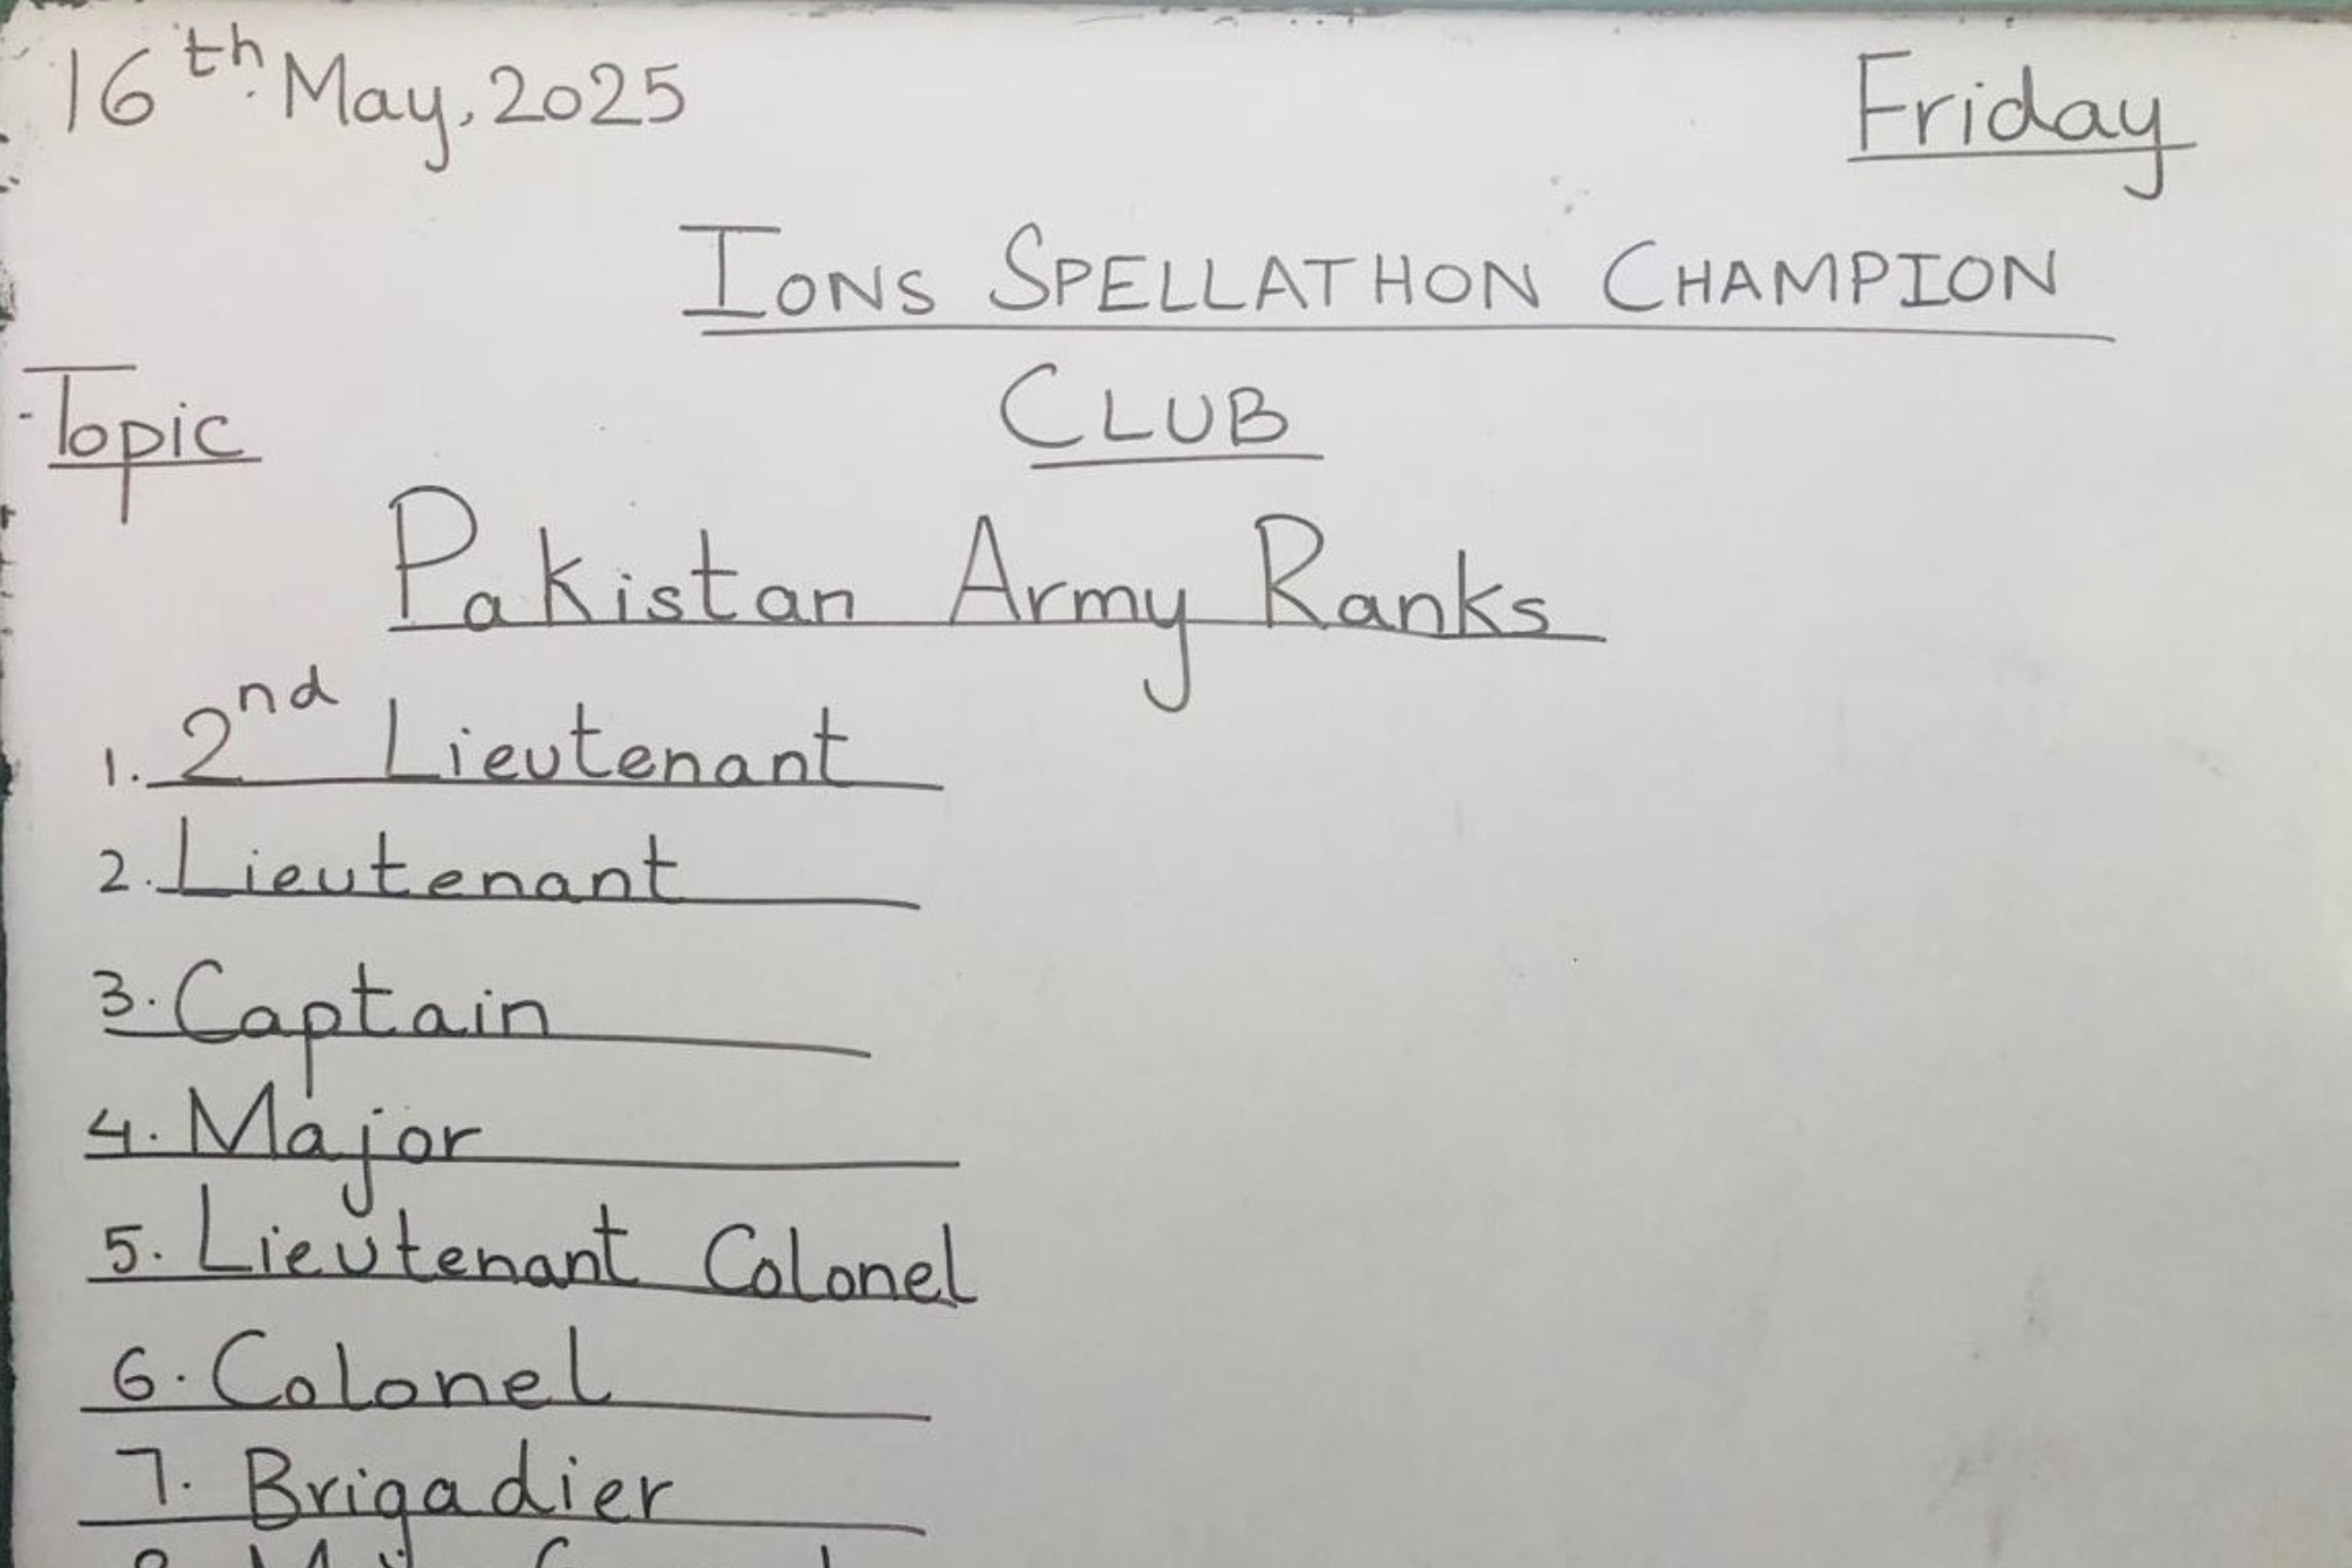 16th May, 2025 Friday
IONS SPELLATHON CHAMPION
CLUB
Topic
Pakistan Army Ranks
1. 2nd Lieutenant
2. Lieutenant
3. Captain
4. Major
5. Lieutenant Colonel
6. Colonel
7. Brigadier